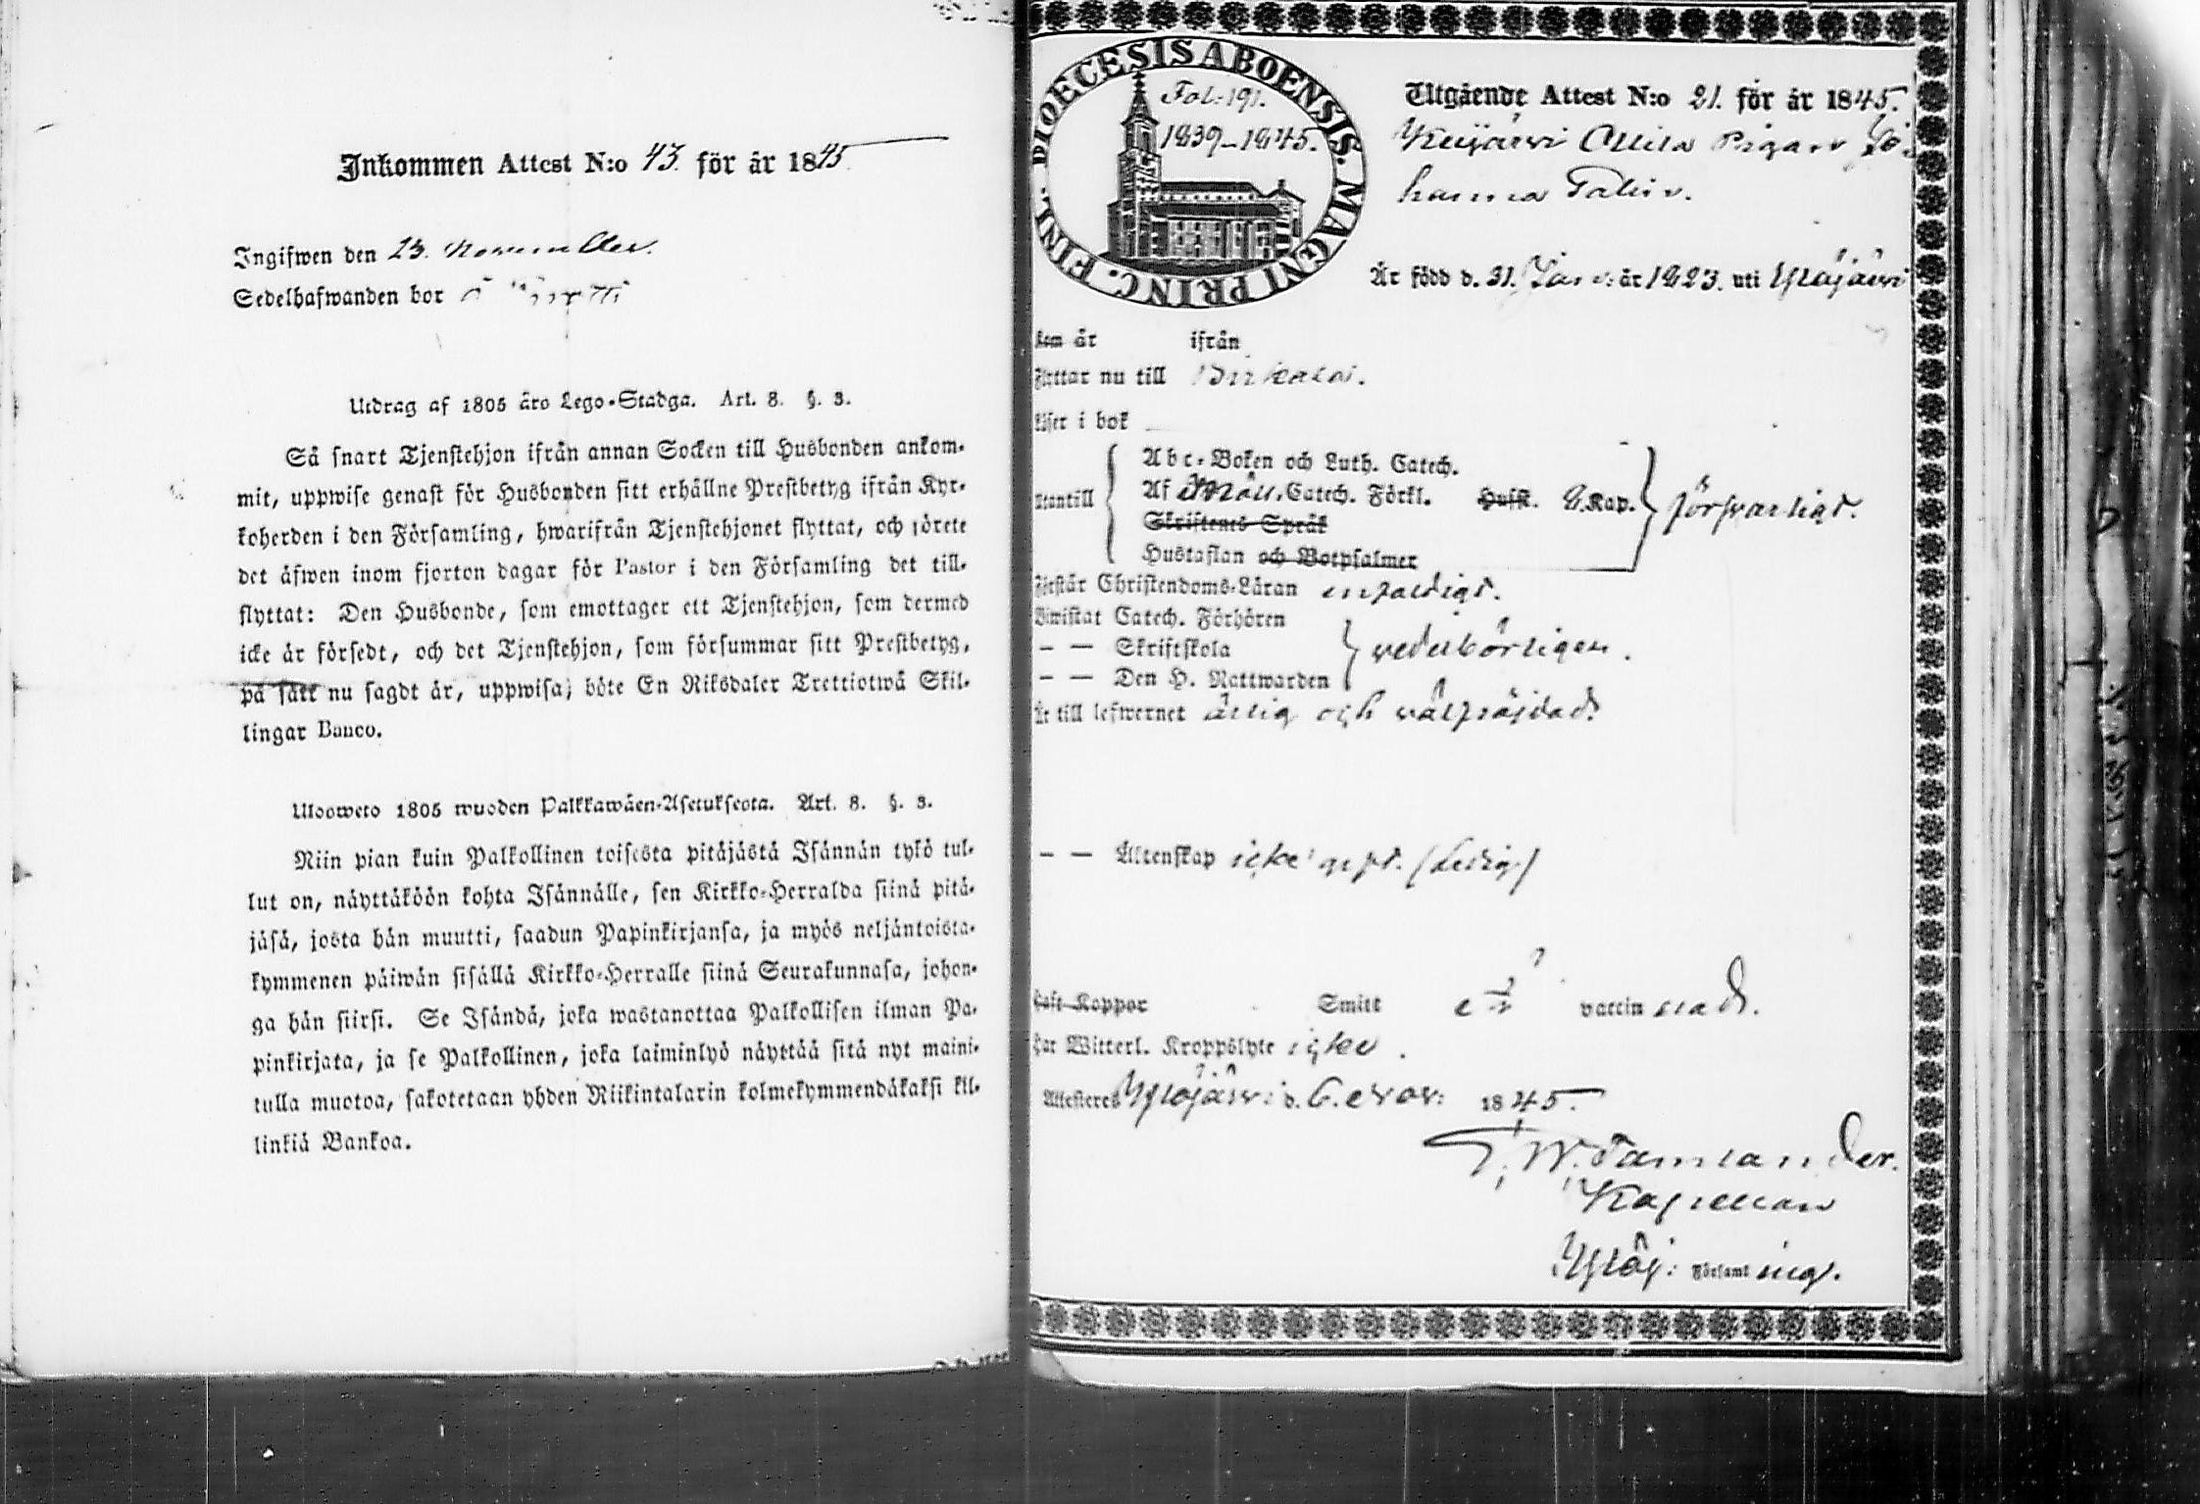 Inkommen Attest N:o 43. för år 1845.
Ingifwen den 23. November.
Sedelhafwanden bor å
Utdrag af 1805 års Lego-Stadga. Art. 8. §. 3.
Så snart Tjenstehjon ifrån annan Socken till Husbonden ankom-
mit, uppwise genast för Husbonden sitt erhållne Prestbetyg ifrån Kyr-
koherden i den Församling, hwarifrån Tjenstehjonet flyttat, och förete
det äfwen inom fjorton dagar för Pastor i den Församling det till-
flyttat: Den Husbonde, som emottager ett Tjenstehjon, som dermed
icke är försedt, och det Tjenstehjon, som försummar sitt Prestbetyg,
på sätt nu sagdt är, uppwisa; böte En Riksdaler Trettiotwå Skil-
lingar Banco.
Ulosweto 1805 wuoden Palkkawäen-Asetuksesta. Art. 8. §. 3.
Niin pian kuin Palkollinen toisesta pitäjästä Isännän tykö tul-
lut on, näyttäköön kohta Isännälle, sen Kirkko-Herralda siinä pitä-
jäsä, josta hän muutti, saadun Papinkirjansa, ja myös neljäntoista-
kymmenen päiwän sisällä Kirkko-Herralle siinä Seurakunnasa, johon-
ga hän siirsi. Se Isändä, joka wastanottaa Palkollisen ilman Pa-
pinkirjata, ja se Palkollinen, joka laiminlyö näyttää sitä nyt maini-
tulla muotoa, sakotetaan yhden Riikintalarin kolmekymmendäkaksi kil-
linkiä Bankoa.
DIOECESIS ABOENSIS. MAGNI PRINC. FINL.
Fol: 191.
1839-1845.
Utgående Attest N:o 21. för år 1845.
Pigan Jo-
hanna
Är född d. 31. Jan: år 1823. uti Ylöjärvi
Kom år ifrån
Flyttar nu till Birkala.
Läser i bok
Utantill
Abc-Boken och Luth. Catech.
Af Möll. Catech. Förkl. Hufst. 2. Kap.
Skriftenes Språk
Hustaflan och Botpsalmer
försvarligt.
Förstår Christendoms-Läran enfaldigt.
Biwistat Catech. Förhören
– – Skriftskola
– – Den H. Nattwarden
vederbörligen.
Är till lefwernet ärlig och välfräjdad.
– – Äktenskap icke gift. (Ledig)
Haft Koppor Smitt vaccinerad.
Har Witterl. Kroppslyte icke.
Attesteres Ylöjärvi d. 6. Nov: 1845.
W. Tamlander.
Kapellan
Ylöj: Församling.